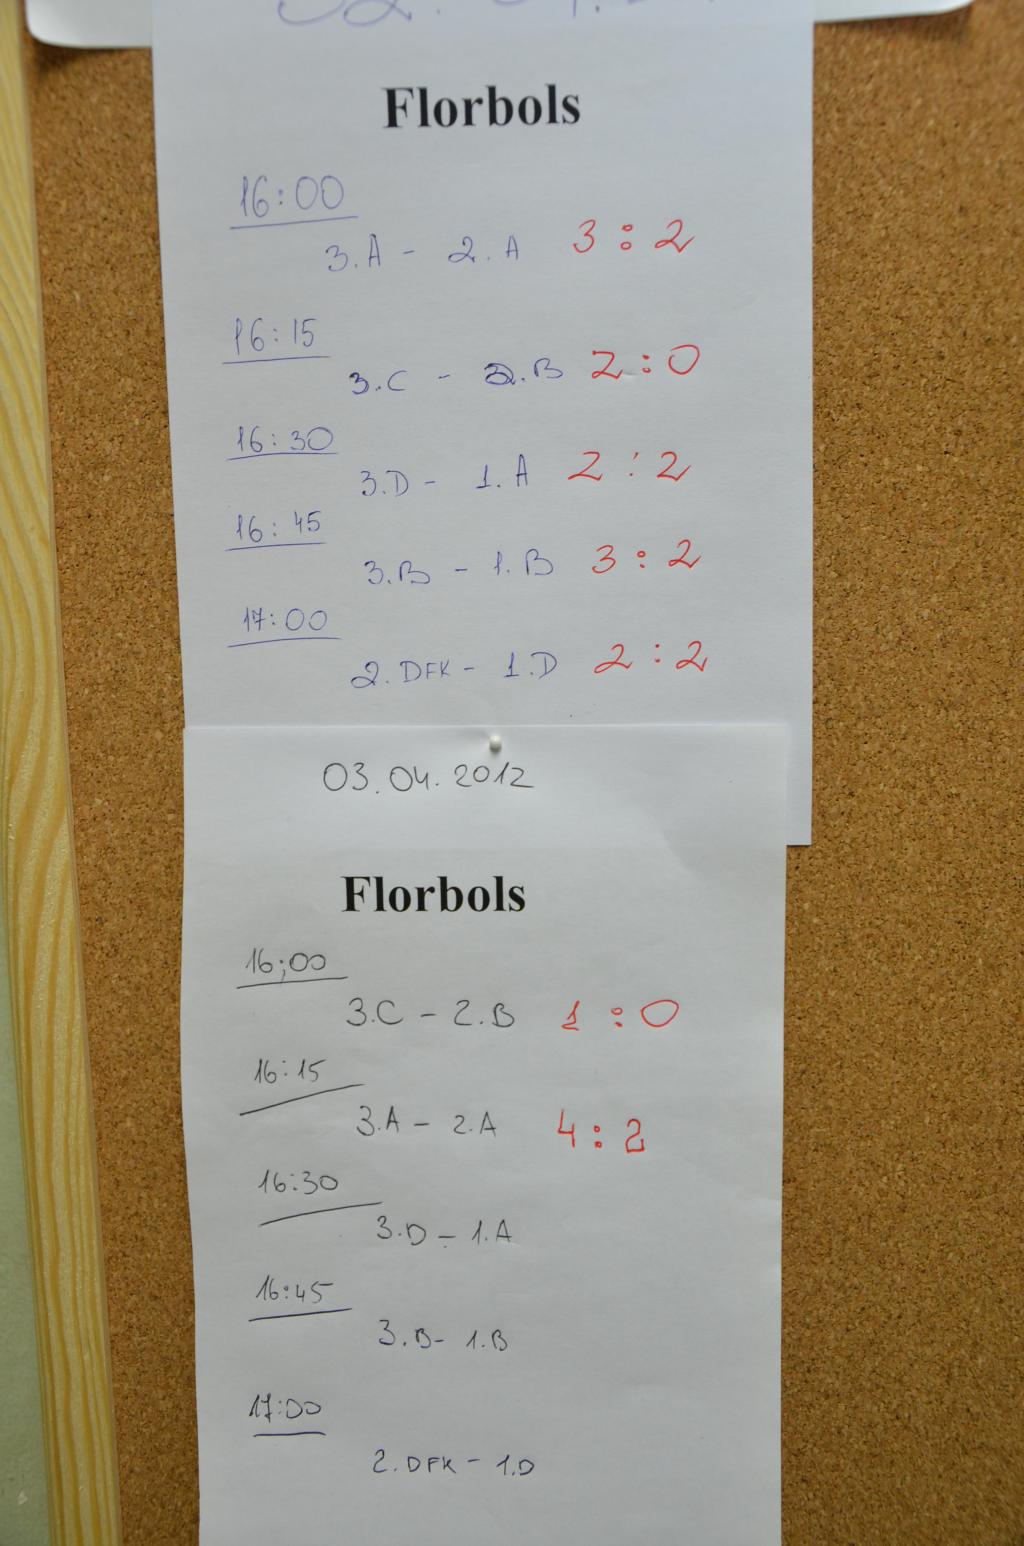 Florbols
16:00
3.A - 2.A 3:2
16:15
3.C - 2.B 2:0
16:30
3.D - 1.A 2:2
16:45
3.B - 1.B 3:2
17:00
2.DFK - 1.D 2:2
03.04.2012
Florbols
16;00
3.C - 2.B 1:0
16:15
3.A - 2.A 4:2
16:30
3.D - 1.A
16:45
3.B - 1.B
17:00
2.DFK - 1.D